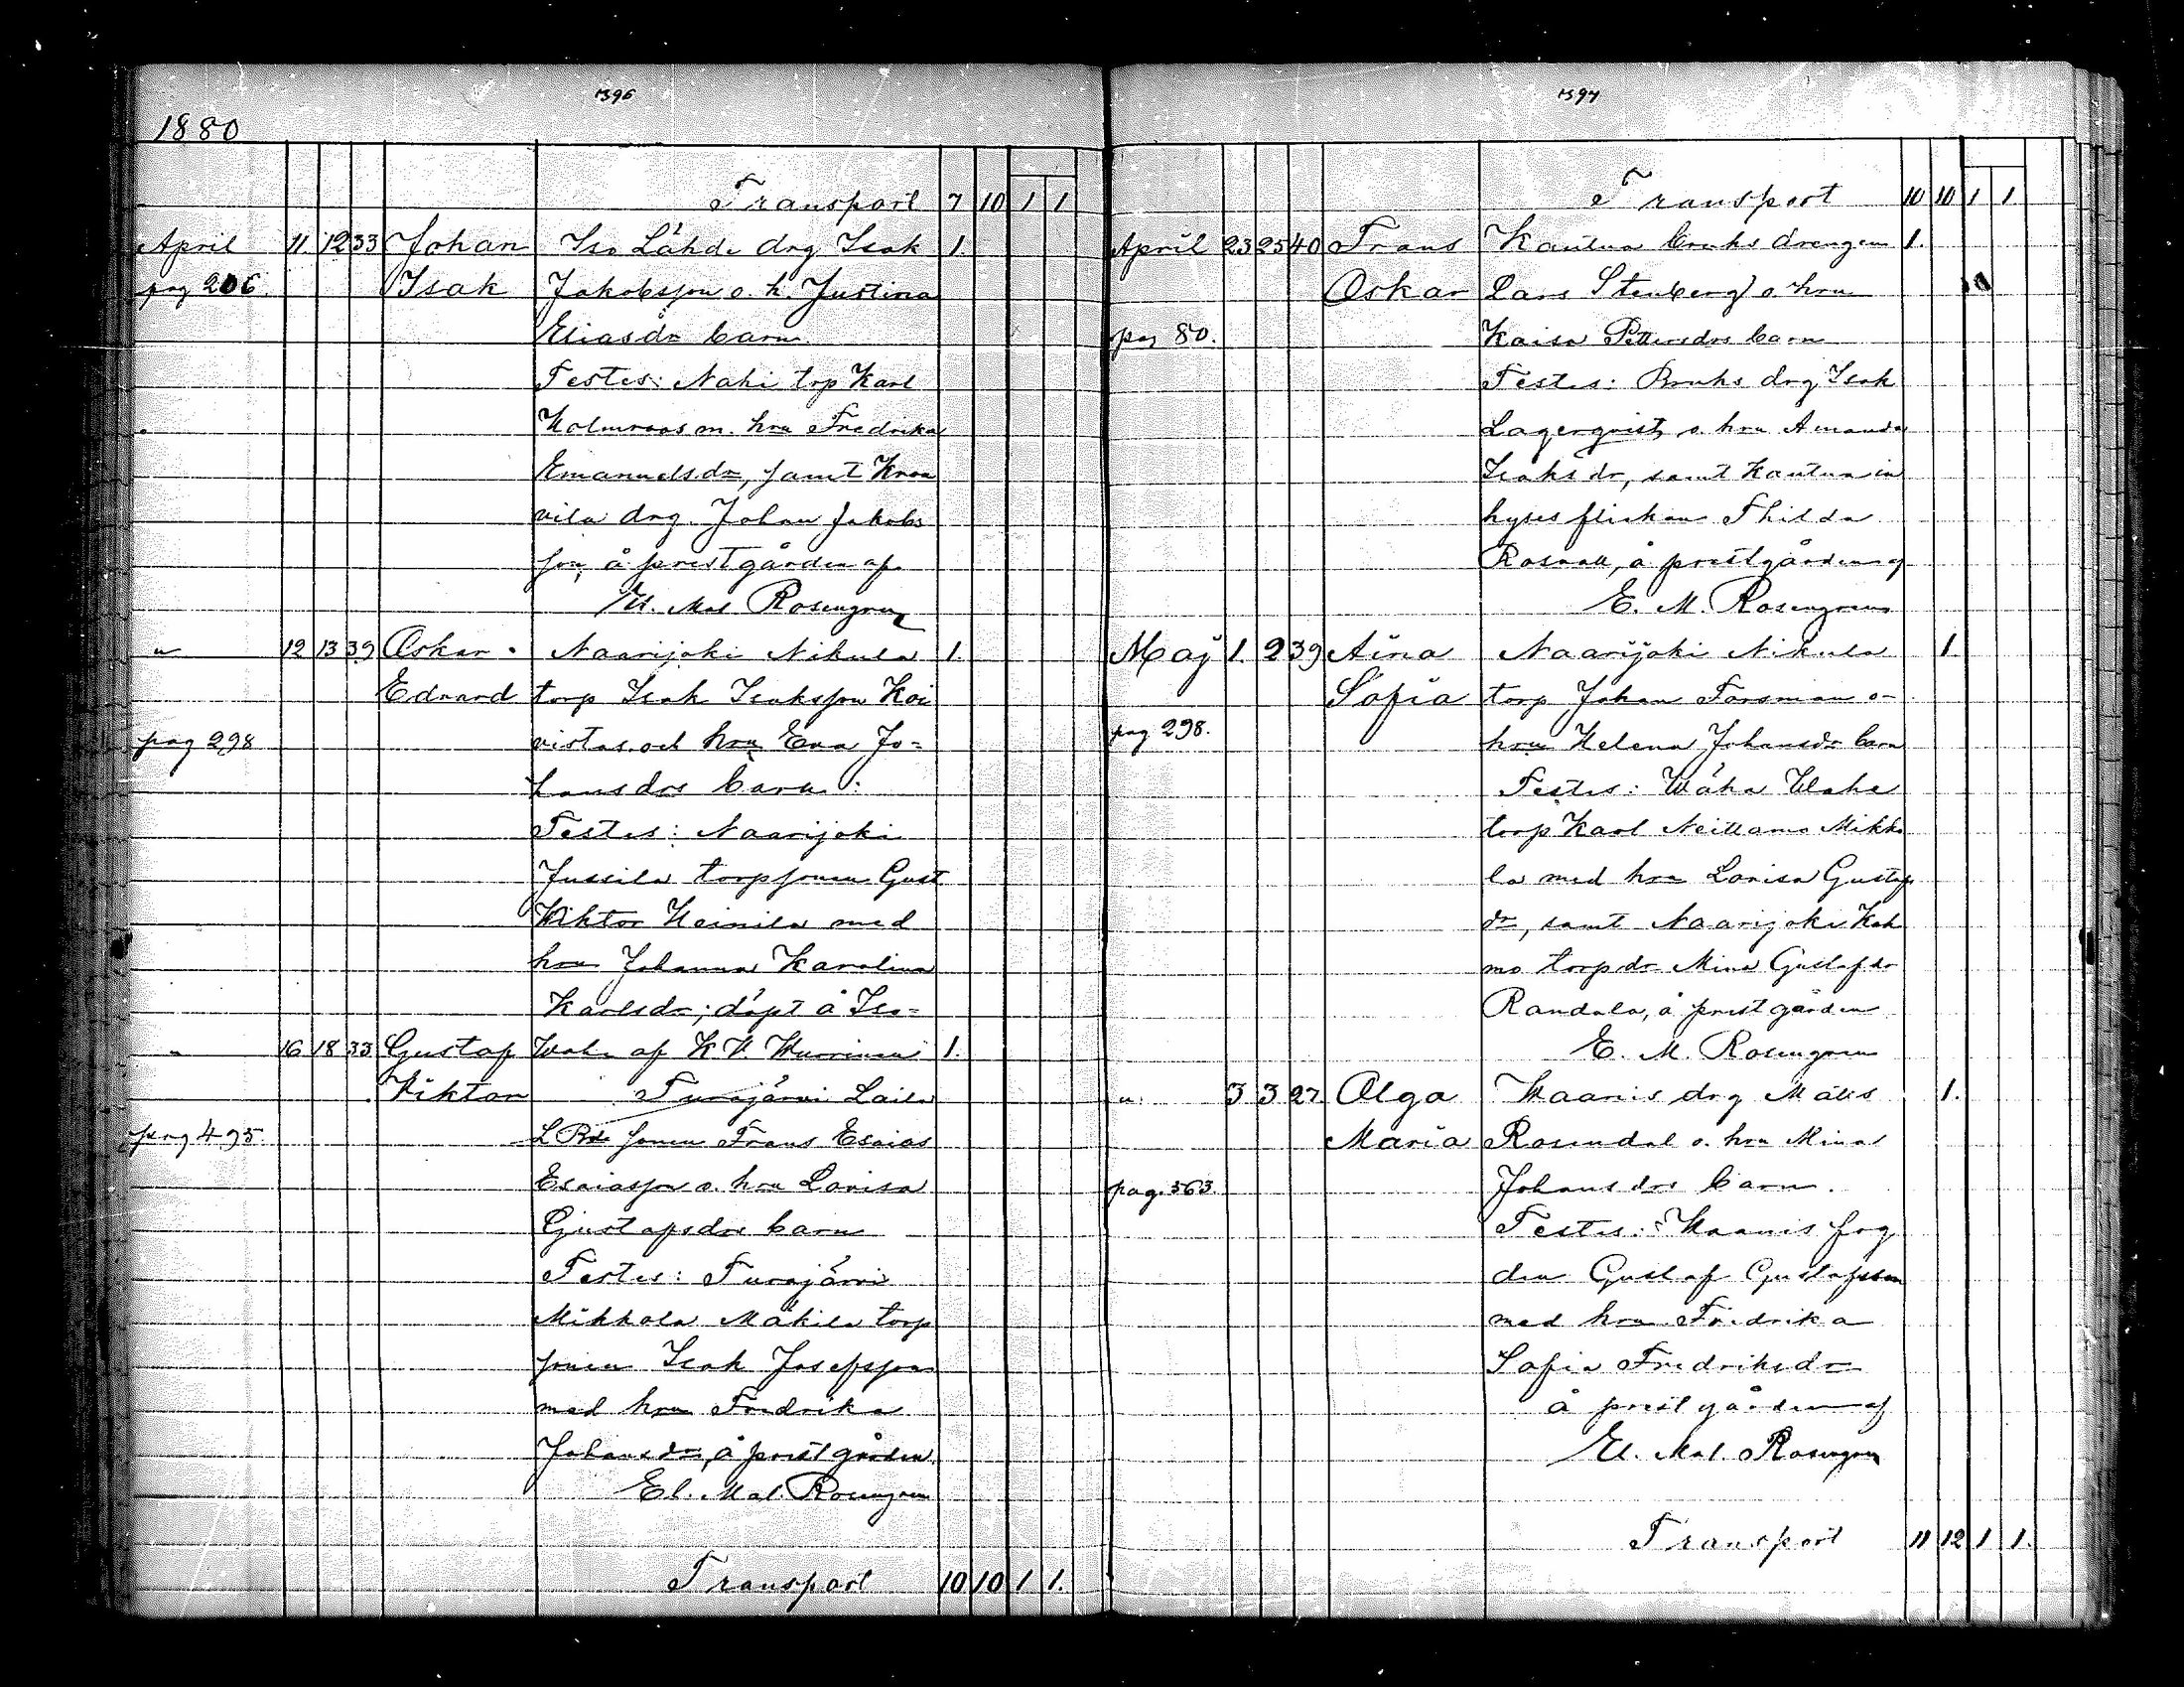 1396
1880
Transport 7 10 1 1
April 11. 12 33 Johan Iso Lähde drg Isak 1.
pag 206. Isak Jakobsson o. h. Justina
Eliasdr barn
Testes: Naki torp Karl
Holmroos m. hru Fredrika
Emanuelsdr, samt Kra
vila drg. Johan Jakobs
son, å prestgården af
El. Mal Rosengren
" 12 13 39 Oskar Naarijoki Nikula 1.
Edvard torp Isak Isaksson Koi
pag 298 vistas och hru Eva Jo=
hansdrs barn:
Testes: Naarijoki
Jussila torpsonen Gust
Wiktor Heinila med
hru Johanna Karolina
Karlsdr; döpt å Iso=
" 16 18 33 Gustaf af K V 1.
Viktor Turajärvi Laila
pag 495. L Bde sonen Frans Esaias
Esaiasson o. hru Lovisa
Gustafsdrs barn
Testes: Turajärvi
Mikkola Mäkila torp
sonen Isak Josefsson
med hru Fredrika
Johansdr, å prestgården
El. Mal. Rosengren
Transport 10 10 1 1.
1397
Transport 10 10 1 1
April 23 25 40 Frans Kautua bruks drengen 1.
Oskar Lars Stenberg o hru
pag 80. Kaisa Pettersdrs barn
Testes: Bruks drg Isak
Lagerqvist, o. hru Amanda
Isaksdr, samt Kautua in
hyses flickan Thilda
Rosvall, å prestgården af
E. M. Rosengren
Maj 1. 2 39 Aina Naarijoki Nikula 1.
Sofia torp Johan Forsman o
pag 298. hru Helena Johansdr barn
Testes: Wäha Wahe
torp Karl Neittamo Mikko
la med hru Lovisa Gustafs
dr, samt Naarijoki Kah
mo torpdr Mina Gustafsdr
Randala, å prestgården
E. M. Rosengren
" 3 3 27 Olga Kaanis drg Mats 1.
Maria Rosendal o. hru Mina
pag. 363. Johansdrs barn.
Testes: Kaanis fog
den Gustaf Gustafsson
med hru Fredrika
Sofia Fredriksdr
å prestgården af
El. Mal. Rosengren
Transport 11 12 1 1.